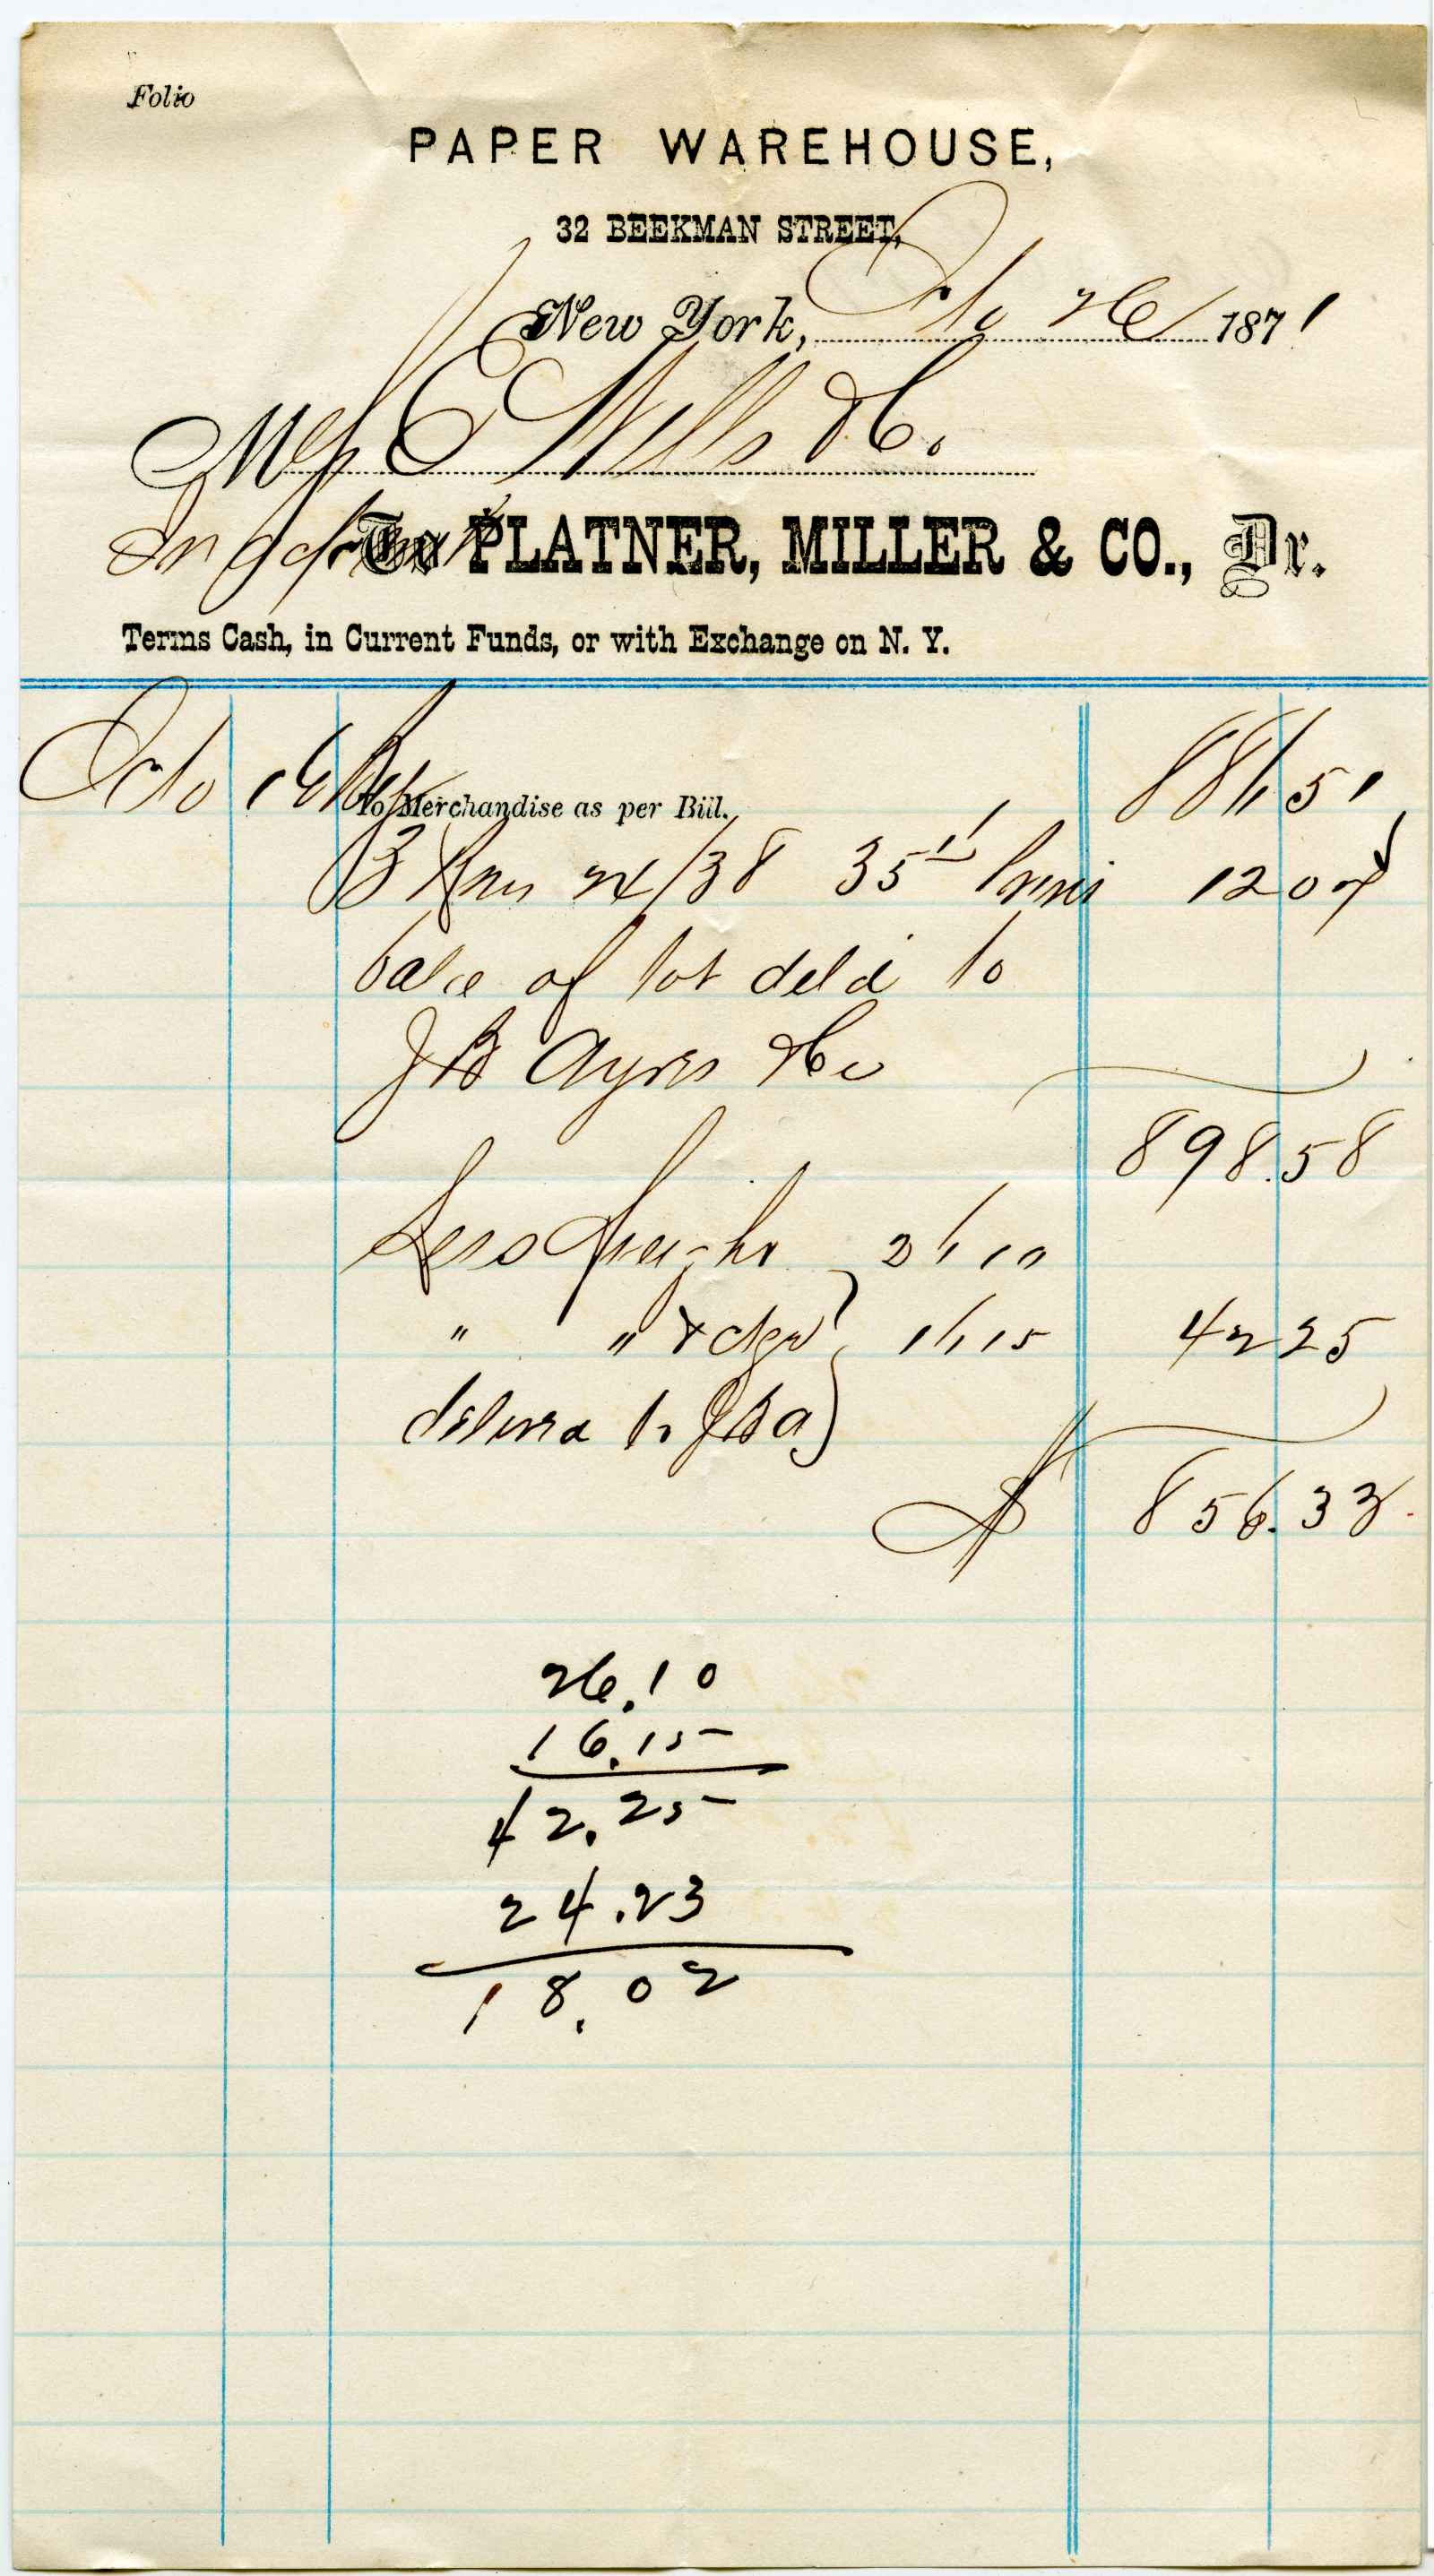 Folio
PAPER WAREHOUSE,
32 BEEKMAN STREET,
New York, Octo 26 1871
Mess C Wells & Co.
In a/c
To PLATNER, MILLER & CO., Dr.
Terms Cash, in Current Funds, or with Exchange on N. Y.
Octo 16 To Merchandise as per Bill. 886 51
3 Rms 24/38 35 12 07
balce of lot deld to
J B Ayres & Co
898.58
Less freight 26 10
" " & ctge 16 15 42 25
deliverd to J B A
$ 856.33
26.10
16.15
42.25
24.23
18.02